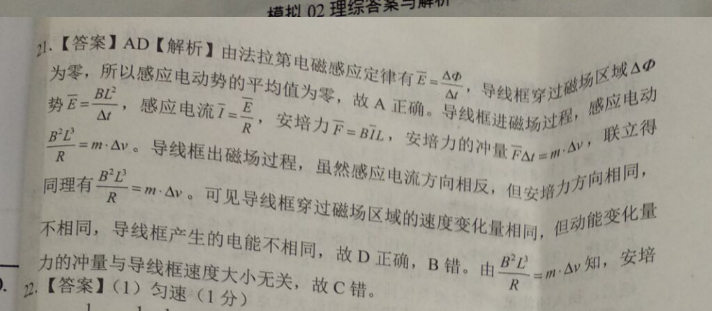 模拟 02 理综答案与解析
21.【答案】AD【解析】由法拉第电磁感应定律有 E̅ = ΔΦ/Δt，导线框穿过磁场区域 ΔΦ
为零，所以感应电动势的平均值为零，故 A 正确。导线框进磁场过程，感应电动
势 E̅ = BL²/Δt，感应电流 I̅ = E̅/R，安培力 F̅ = BI̅L，安培力的冲量 F̅Δt = m·Δv，联立得
B²L³/R = m·Δv。导线框出磁场过程，虽然感应电流方向相反，但安培力方向相同，
同理有 B²L³/R = m·Δv。可见导线框穿过磁场区域的速度变化量相同，但动能变化量
不相同，导线框产生的电能不相同，故 D 正确，B 错。由 B²L³/R = m·Δv 知，安培
力的冲量与导线框速度大小无关，故 C 错。
22.【答案】（1）匀速（1 分）